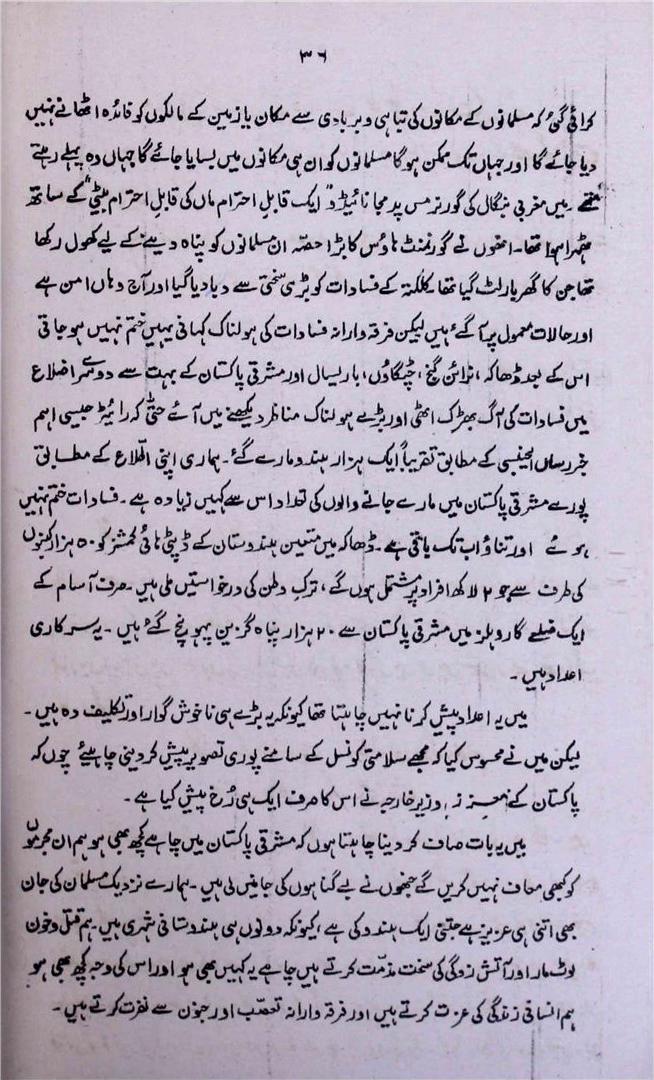 ۳۶
کرائی گئی کہ مسلمانوں کے مکانوں کی تباہی و بربادی سے مکان یا زمین کے مالکوں کو فائدہ اٹھانے نہیں
دیا جائے گا اور جہاں تک ممکن ہوگا مسلمانوں کو ان ہی مکانوں میں بسایا جائے گا جہاں وہ پہلے رہتے
تھے۔ میں مغربی بنگال کی گورنر مس پدمجا نائیڈو "ایک قابلِ احترام ماں کی قابلِ احترام بیٹی" کے ساتھ
ٹھہرا ہوا تھا۔ انھوں نے گورنمنٹ ہاؤس کا بڑا حصّہ ان مسلمانوں کو پناہ دینے کے لیے کھول رکھا
تھا جن کا گھر بار لٹ گیا تھا کلکتہ کے فسادات کو بڑی سختی سے دبا دیا گیا اور آج وہاں امن ہے
اور حالات معمول پر آگئے ہیں لیکن فرقہ وارانہ فسادات کی ہولناک کہانی یہیں ختم نہیں ہو جاتی
اس کے بعد ڈھاکہ، نرائن گنج، چٹگاؤں، باریسال اور مشرقی پاکستان کے بہت سے دوسرے اضلاع
میں فسادات کی آگ بھڑک اٹھی اور بڑے ہولناک مناظر دیکھنے میں آئے حتیٰ کہ رائیٹر جیسی اہم
خبر رساں ایجنسی کے مطابق تقریباً ایک ہزار ہندو مارے گئے۔ ہماری اپنی اطلاع کے مطابق
پورے مشرقی پاکستان میں مارے جانے والوں کی تعداد اس سے کہیں زیادہ ہے۔ فسادات ختم نہیں
ہوئے اور تناؤ اب تک باقی ہے۔ ڈھاکہ میں متعین ہندوستان کے ڈپٹی ہائی کمشنر کو ۵۰ ہزار کنبوں
کی طرف سے جو ۲ لاکھ افراد پر مشتمل ہوں گے، ترکِ وطن کی درخواستیں ملی ہیں۔ صرف آسام کے
ایک ضلعے گارو ہلز میں مشرقی پاکستان سے ۲۰ ہزار پناہ گزین پہونچ گئے ہیں۔ یہ سرکاری
اعداد ہیں۔
میں یہ اعداد پیش کرنا نہیں چاہتا تھا کیونکہ یہ بڑے ہی ناخوش گوار اور تکلیف دہ ہیں۔
لیکن میں نے محسوس کیا کہ مجھے سلامتی کونسل کے سامنے پوری تصویر پیش کر دینی چاہیئے چوں کہ
پاکستان کے معزز وزیر خارجہ نے اس کا صرف ایک ہی رُخ پیش کیا ہے۔
میں یہ بات صاف کر دینا چاہتا ہوں کہ مشرقی پاکستان میں چاہے کچھ بھی ہو ہم ان مجرموں
کو کبھی معاف نہیں کریں گے جنھوں نے بے گناہوں کی جانیں لی ہیں۔ ہمارے نزدیک مسلمان کی جان
بھی اتنی ہی عزیز ہے جتنی ایک ہندو کی ہے، کیونکہ دونوں ہی ہندوستانی شہری ہیں۔ ہم قتل و خون
لوٹ مار اور آتش زدگی کی سخت مذمّت کرتے ہیں چاہے یہ کہیں بھی ہو اور اس کی وجہ کچھ بھی ہو
ہم انسانی زندگی کی عزت کرتے ہیں اور فرقہ وارانہ تعصّب اور جنون سے نفرت کرتے ہیں۔